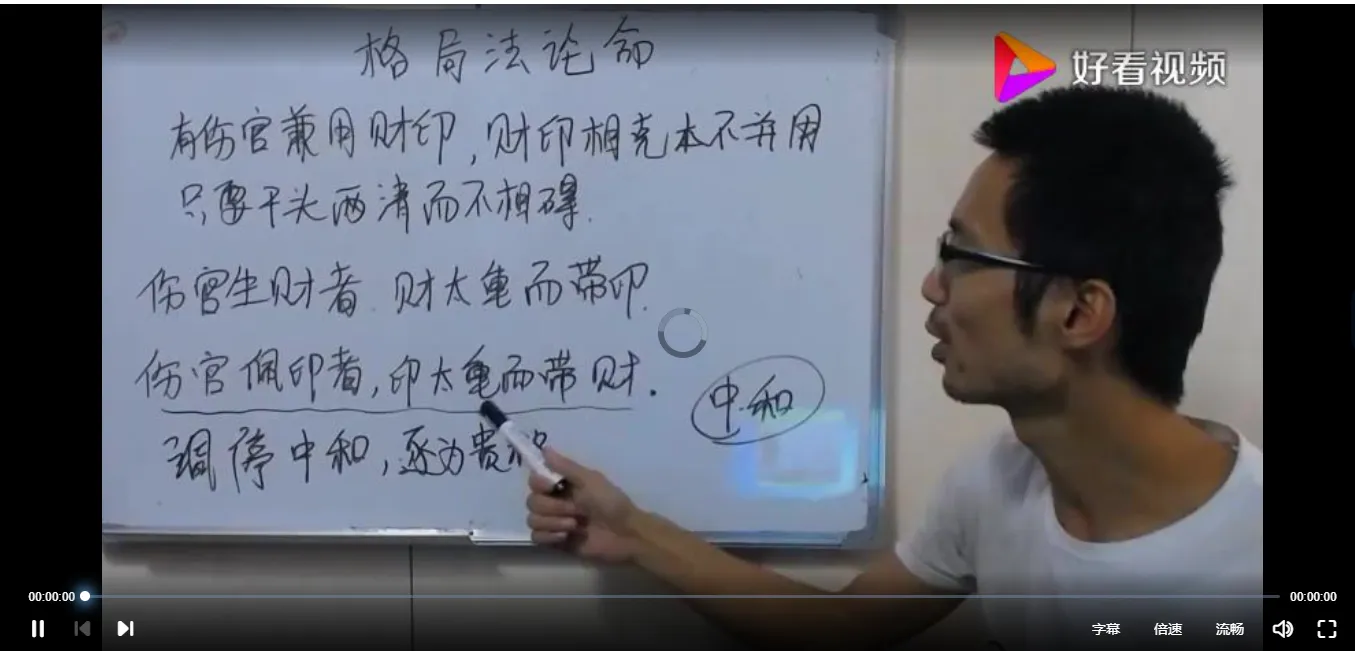 格局法论命
好看视频
有伤官兼用财印,财印相克本不并用
只要干头两清而不相碍.
伤官生财者.财太重而带印.
伤官佩印者,印太重而带财.
中和
调停中和,遂为贵
00:00:00
00:00:00
字幕 倍速 流畅